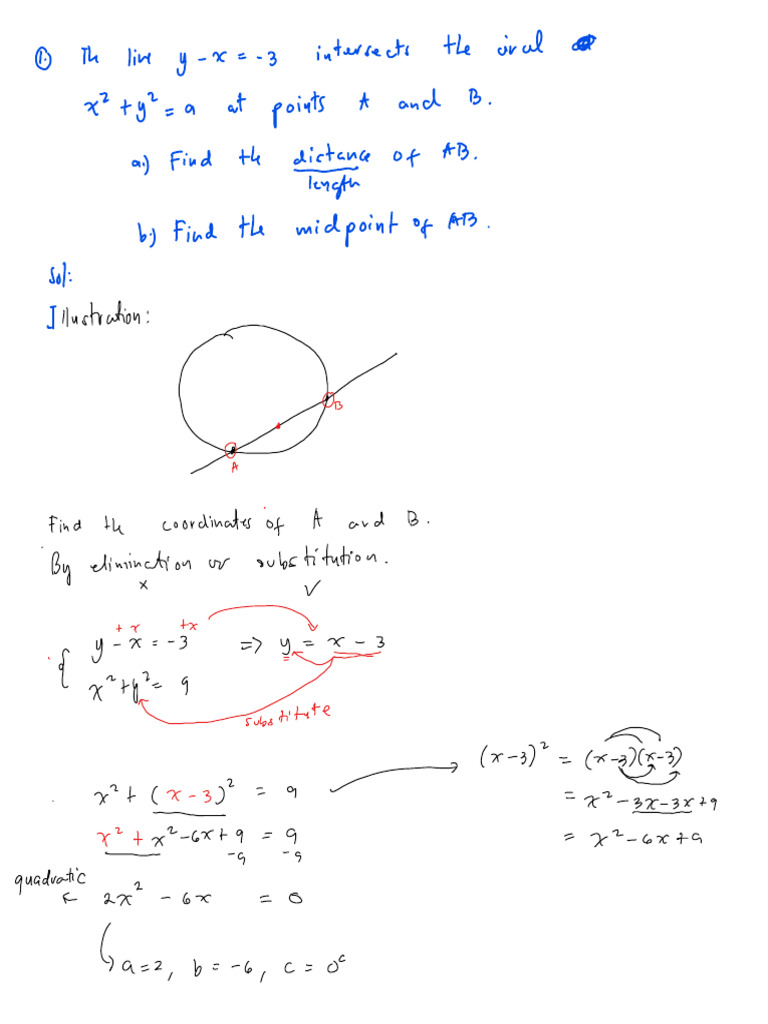 1. Th line y - x = -3 intersects the circal
x² + y² = 9 at points A and B.
a.) Find the distance of AB.
length
b.) Find the midpoint of AB.
Sol:
Illustration:
B
A
Find the coordinates of A and B.
By elimination or substitution.
x ✓
+x +x
{ y - x = -3 => y = x - 3
x² + y² = 9
substitute
(x-3)² = (x-3)(x-3)
x² + (x-3)² = 9
= x² - 3x - 3x + 9
x² + x² - 6x + 9 = 9
= x² - 6x + 9
-9 -9
quadratic
2x² - 6x = 0
a = 2, b = -6, c = 0